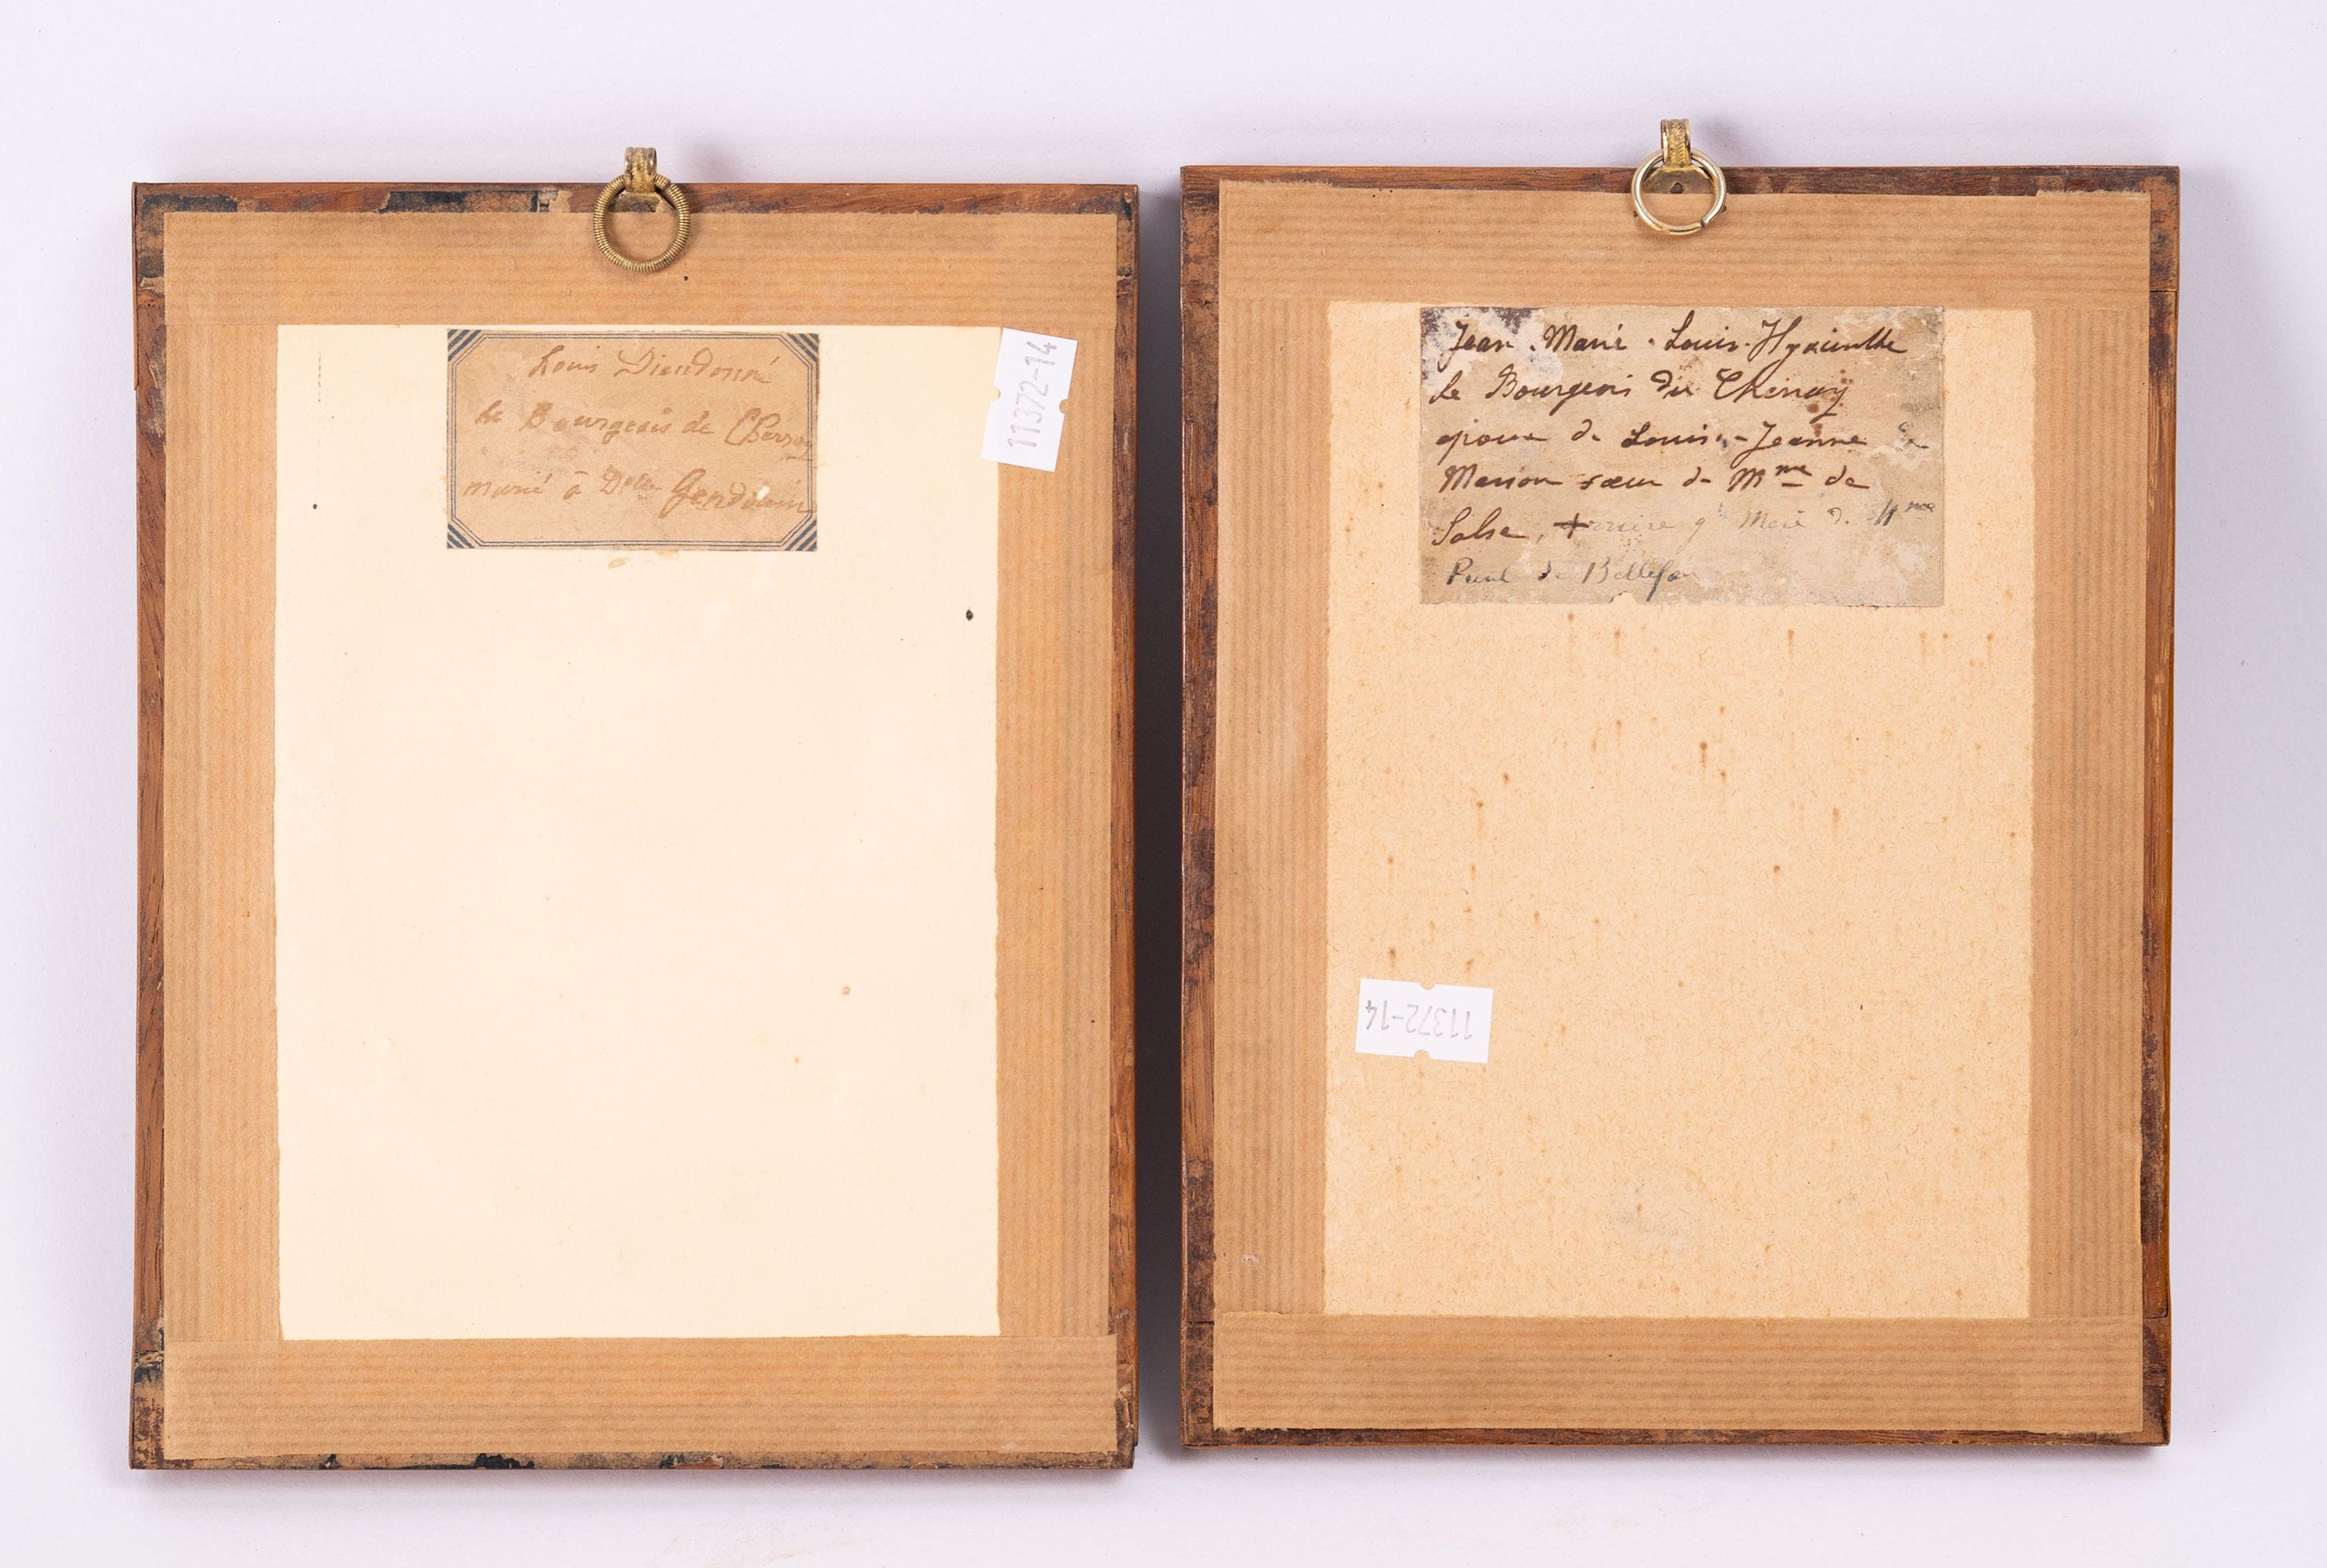 Louis Dieudonné
le Bourgeois de
marié à Delle Gendouin
11372-14
Jean-Marie-Louis-Hyacinthe
le Bourgeois du Chesnay
époux de Louise-Jeanne de
Marion sœur de Mme de
Salse, arrière gd Mère de Mme
Paul de Bellefon
11372-14